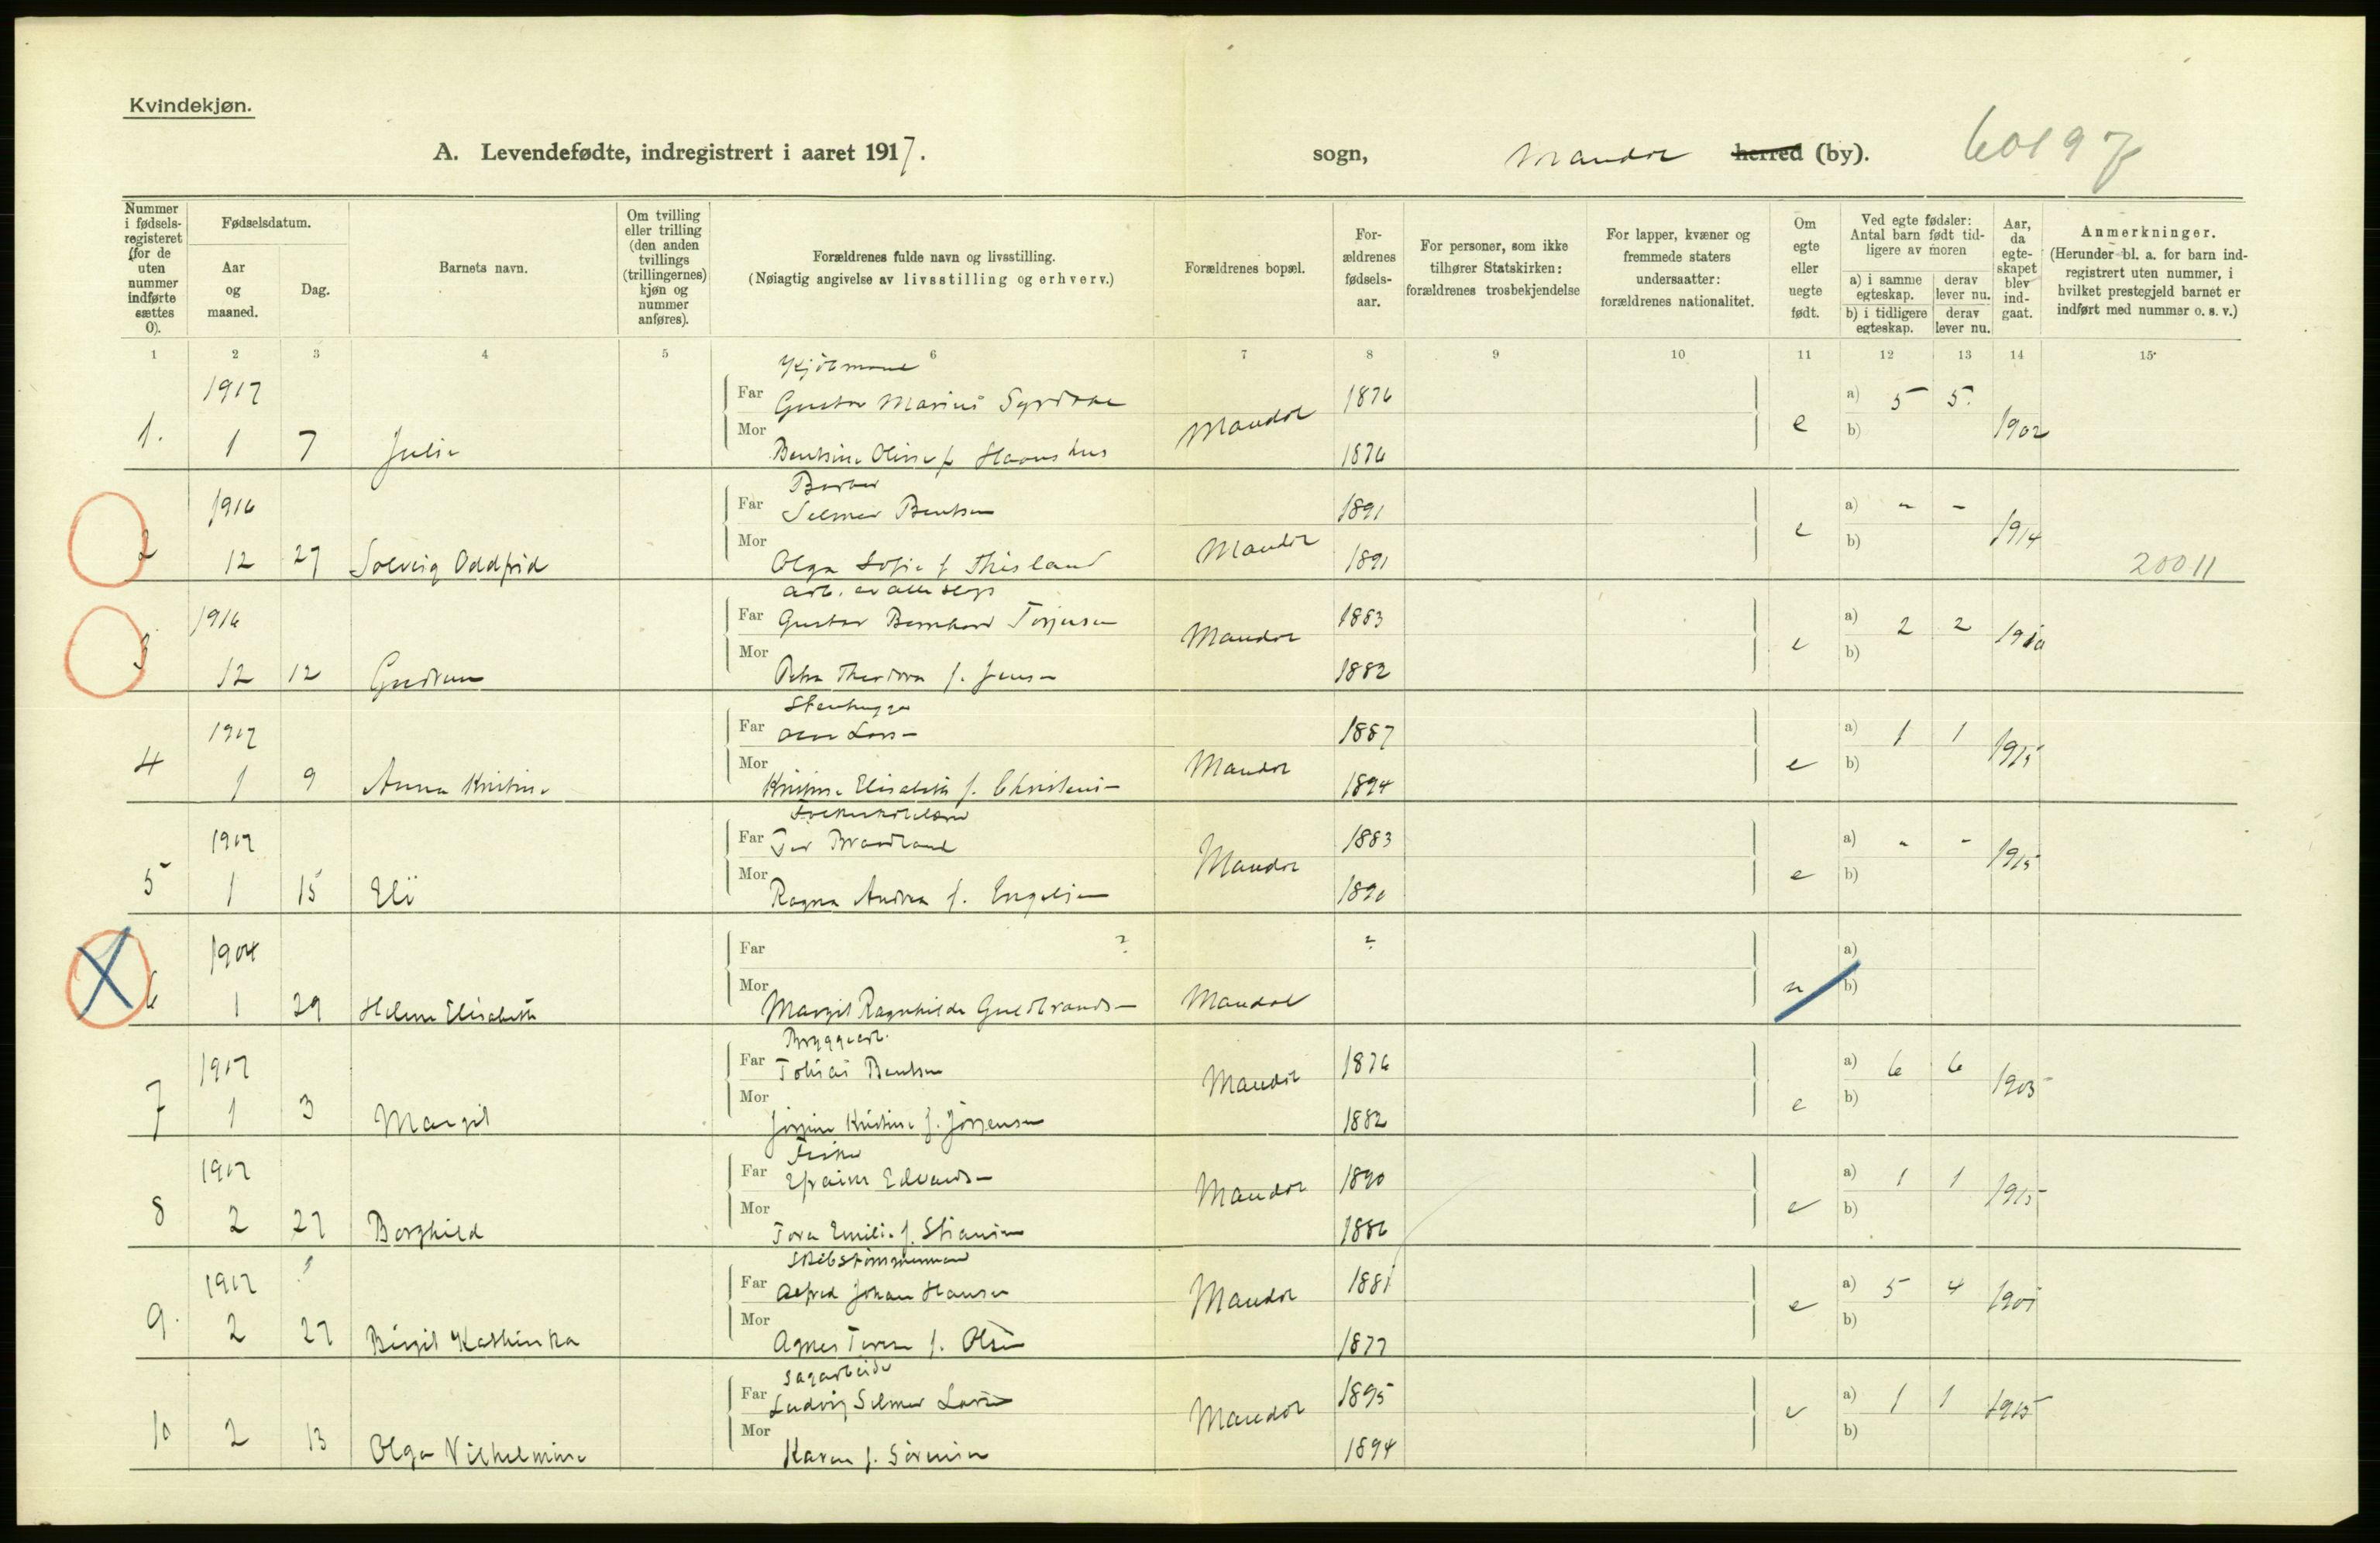 Kvindekjøn.
A. Levendefødte, indregistrert i aaret 1917. sogn, Mandal herred (by). 60197
Nummer i fødselsregisteret (for de uten nummer indførte sættes 0).
Fødselsdatum.
Aar og maaned.
Dag.
Barnets navn.
Om tvilling eller trilling (den anden tvillings (trillingernes) kjøn og nummer anføres).
Forældrenes fulde navn og livsstilling.
(Nøiagtig angivelse av livsstilling og erhverv.)
Forældrenes bopæl.
Forældrenes fødselsaar.
For personer, som ikke tilhører Statskirken: forældrenes trosbekjendelse
For lapper, kvæner og fremmede staters undersaatter: forældrenes nationalitet.
Om egte eller uegte født.
Ved egte fødsler: Antal barn født tidligere av moren
a) i samme egteskap. derav lever nu.
b) i tidligere egteskap. derav lever nu.
Aar, da egteskapet blev indgaat.
Anmerkninger.
(Herunder bl. a. for barn indregistrert uten nummer, i hvilket prestegjeld barnet er indført med nummer o. s. v.)
1 2 3 4 5 6 7 8 9 10 11 12 13 14 15
Kjøbmand
1917 Far Gustav Marius Syrdahl 1876 a) 5 5
1. 1 7 Julie Mor Bentsine Oline f. Mandal 1876 e b) 1902
Barber
1916 Far Selmer Bentsen 1891 a) - -
2 12 27 Solveig Oddfrid Mor Olga Sofie f. Thisland Mandal 1891 e b) 1914 20011
arb. av alle slags
1916 Far Gustav Bernhard Torjusen 1883 a) 2 2
3 12 12 Gudrun Mor Petra Theodora f. Jensen Mandal 1882 e b) 1910
Stenhugger
1917 Far Lars- 1887 a) 1 1
4 1 9 Anna Kristine Mor Kristine Elisabeth f. Christens- Mandal 1894 e b) 1915
1917 Far Brandland 1883 a) - -
5 1 15 Eli Mor Ragna Andrea f. Engelsen Mandal 1890 e b) 1915
1904 Far ? ? a)
6 1 29 Helene Elisabeth Mor Margit Ragnhilda Guldbrands- Mandal u b)
Bryggearb.
1917 Far Tobias Bentsen 1876 a) 6 6
7 1 3 Margit Mor Jørgine Kristine f. Jørgensen Mandal 1882 e b) 1903
Fisker
1917 Far Efraim Edvards- 1890 a) 1 1
8 2 27 Borghild Mor Tora Emilie f. Stiansen Mandal 1886 e b) 1915
Skibstømmermand
1917 Far Alfred Johan Hansen 1881 a) 5 4
9. 2 27 Birgit Kathinka Mor Agnes f. Olsen Mandal 1877 e b) 1901
Sagarbeider
Far Ludvig Selmer Larsen 1895 a) 1 1
10 2 13 Olga Vilhelmine Mor Karen f. Sørensen Mandal 1894 e b) 1915